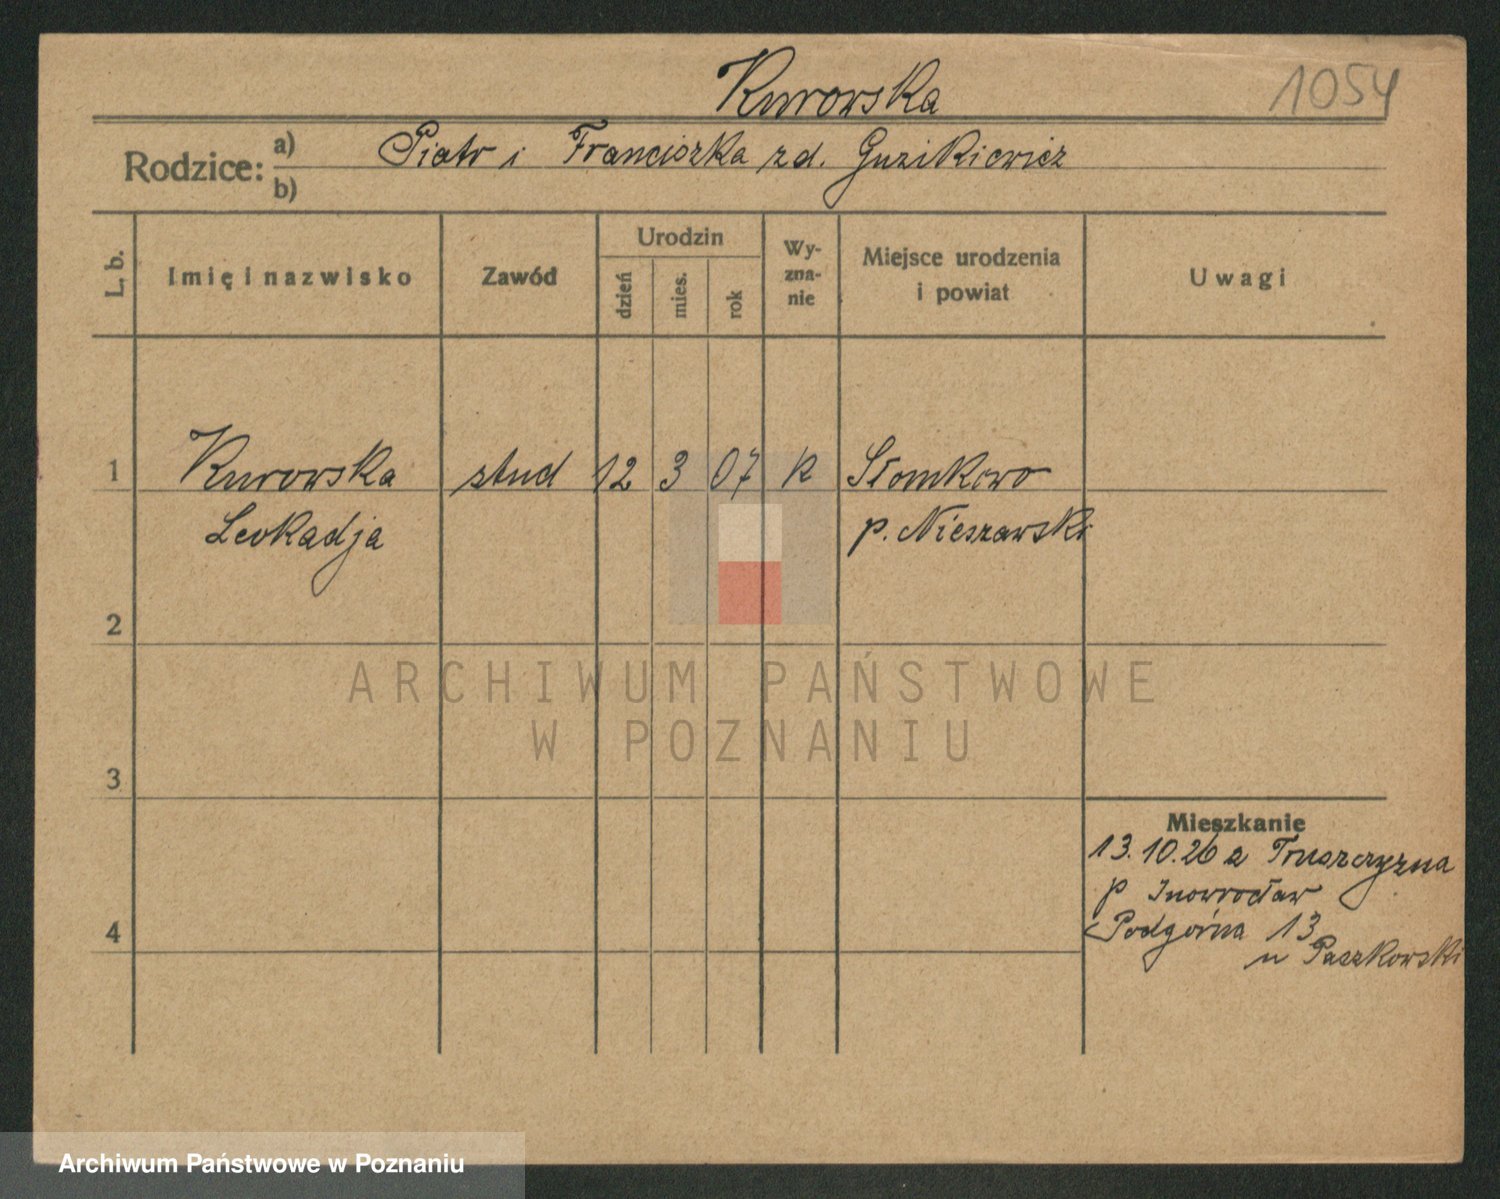 Kurowska
1054
Rodzice: a) Piotr i Franciszka zd. Guzikiewicz
b)
L. b.
Imię i nazwisko
Zawód
Urodzin
dzień
mies.
rok
Wy-
zna-
nie
Miejsce urodzenia
i powiat
Uwagi
1 Kurowska stud 12 3 07 k Słomkowo
Leokadja p. Nieszawski
2
3
4
Mieszkanie
13.10.26 z Truszczyzna
p Inowrocław
Podgórna 13
u Paszkowski
ARCHIWUM PAŃSTWOWE
W POZNANIU
Archiwum Państwowe w Poznaniu